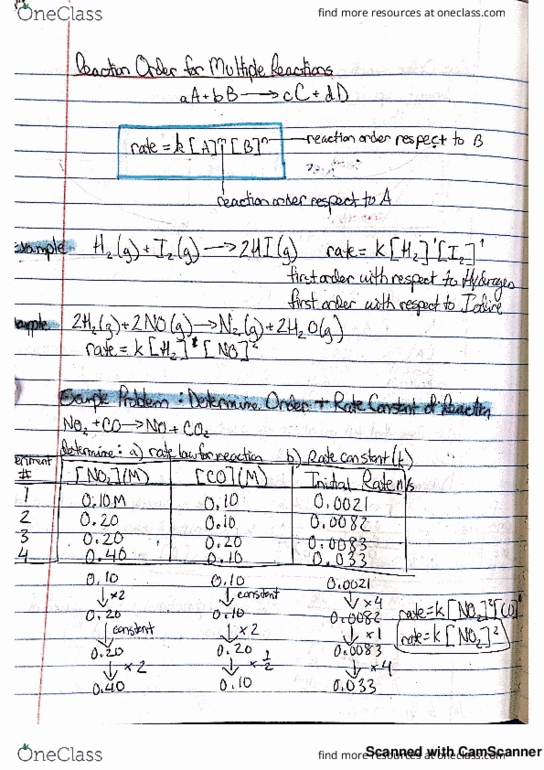 OneClass
find more resources at oneclass.com
Reaction Order for Multiple Reactions
aA + bB → cC + dD
rate = k [A]ᵐ [B]ⁿ — reaction order respect to B
reaction order respect to A
Example: H₂(g) + I₂(g) → 2HI(g) rate = k[H₂]¹[I₂]¹
first order with respect to Hydrogen
first order with respect to Iodine
ample 2H₂(g) + 2NO(g) → N₂(g) + 2H₂O(g)
rate = k [H₂]¹ [NO]²
Example Problem: Determine Order + Rate Constant of Reaction
NO₂ + CO → NO + CO₂
determine: a) rate law for reaction b) Rate constant (k)
# [NO₂](M) [CO](M) Initial Rate M/s
1 0.10M 0.10 0.0021
2 0.20 0.10 0.0082
3 0.20 0.20 0.0083
4 0.40 0.10 0.033
0.10 0.10 0.0021
↓ ×2 ↓ constant ↓ ×4 rate = k [NO₂]² [CO]⁰
0.20 0.10 0.0082
↓ constant ↓ ×2 ↓ ×1 rate = k [NO₂]²
0.20 0.20 0.0083
↓ ×2 ↓ ×½ ↓ ×4
0.40 0.10 0.033
Scanned with CamScanner
OneClass
find more resources at oneclass.com